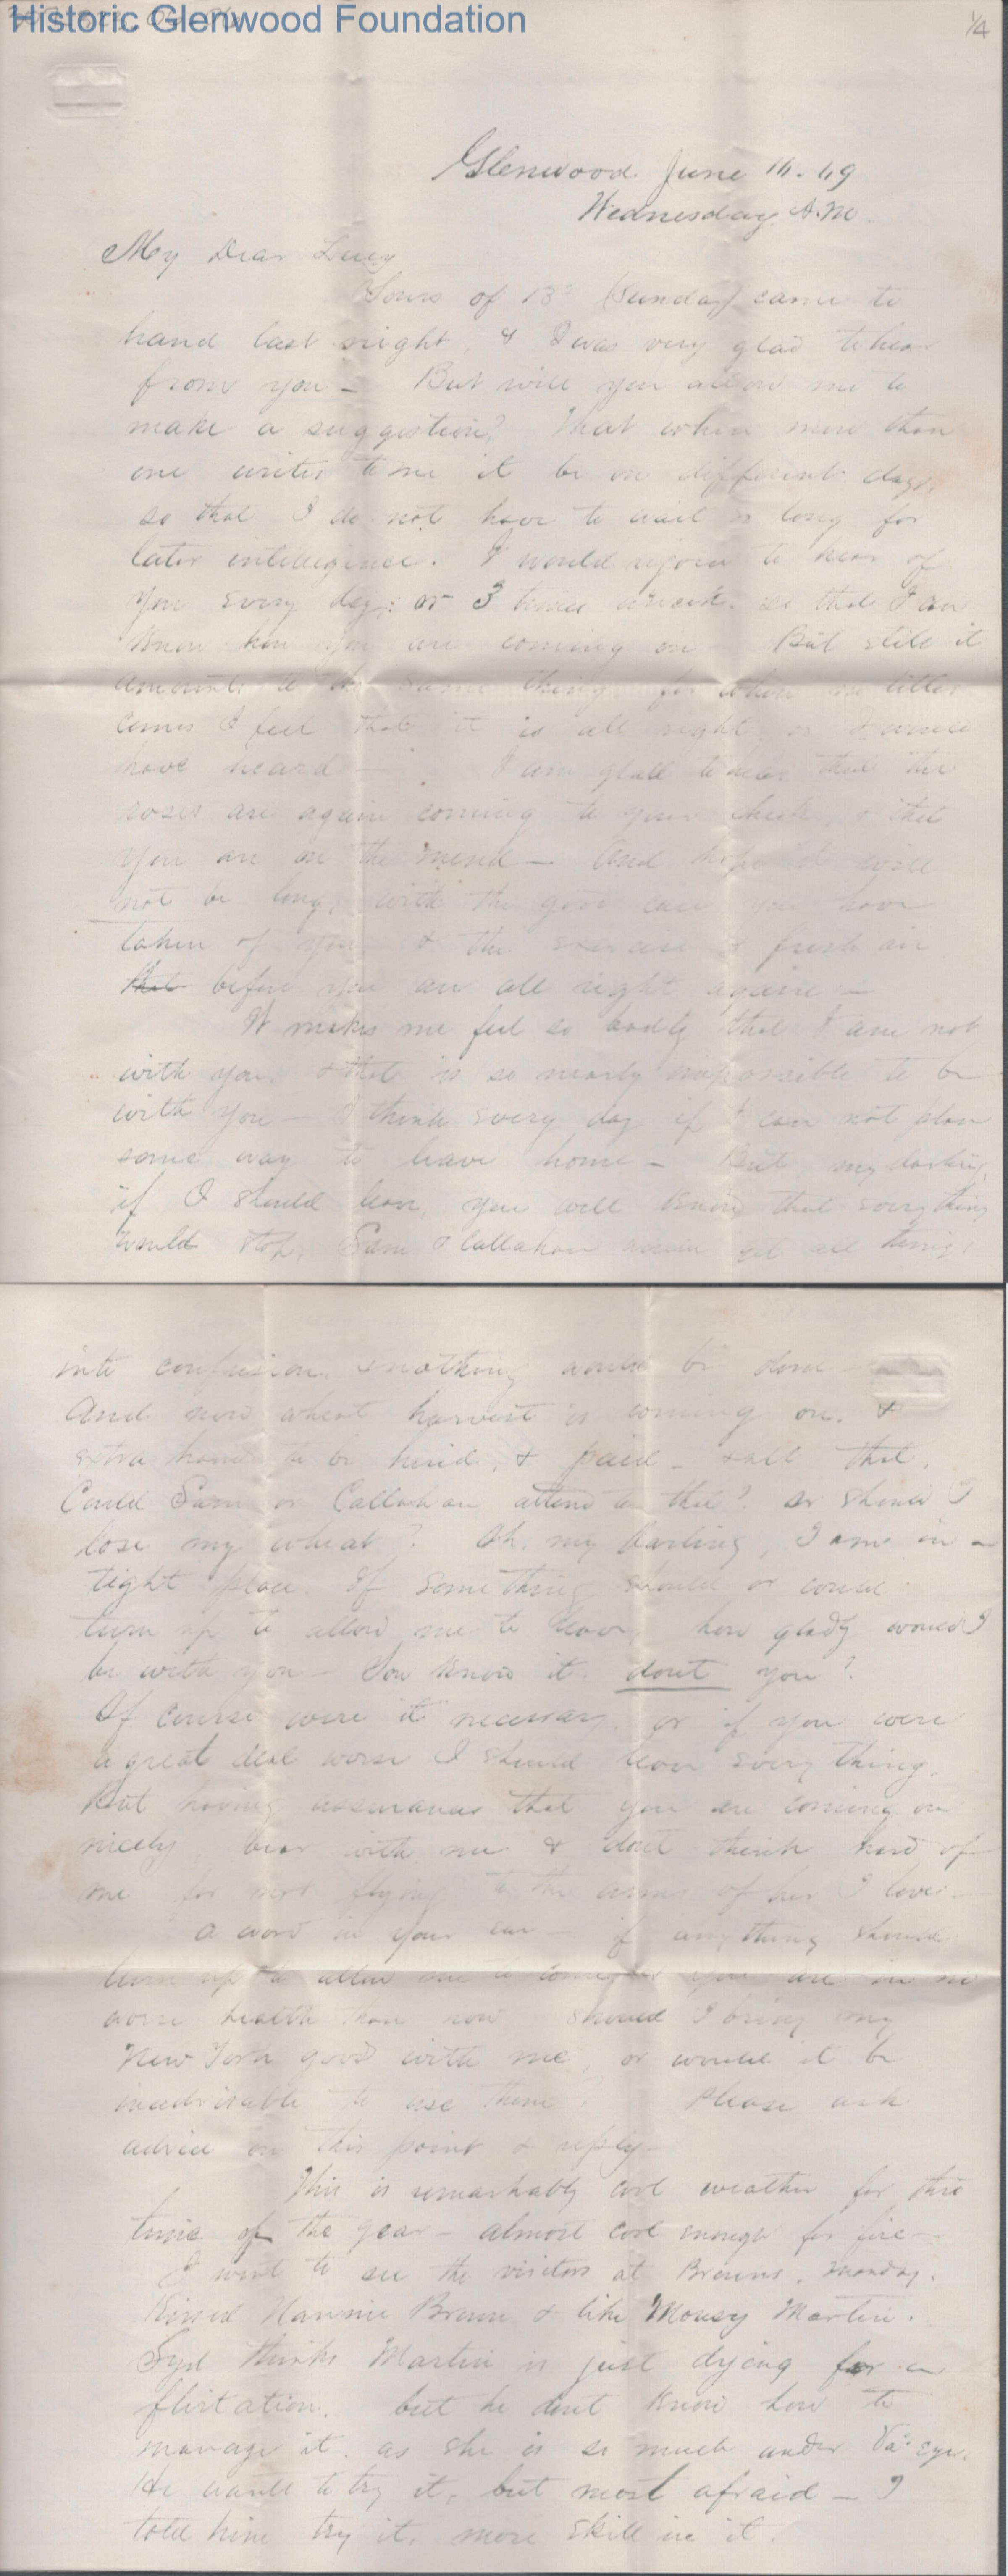 Historic Glenwood Foundation
1/4
Glenwood June 16. 69
Wednesday A.M.
My Dear Lucy
Yours of 13th (Sunday) came to
hand last night, & I was very glad to hear
from you – But will you allow me to
make a suggestion? That when more than
one writes to me it be on different days,
so that I do not have to wait so long for
later intelligence. I would rejoice to hear of
you every day; or 3 times a week. so that I can
know how you are coming on – But still it
amounts to the same thing, for when no letter
comes I feel that it is all right, or I would
have heard – I am glad to hear that the
roses are again coming to your cheeks, & that
you are on the mend – And hope it will
not be long, with the good care you have
taken of you & the exercise & fresh air
that before you are all right again –
It makes me feel so badly that I am not
with you. & that is so nearly impossible to be
with you – I think every day if I can not plan
some way to leave home – But my darling,
if I should leave, you well know that everything
would stop, Sam & Callahan would get all things
into confusion, & nothing would be done
And now wheat harvest is coming on, &
extra hands to be hired, & paid – & all that.
Could Sam or Callahan attend to that? or should I
lose my wheat? Oh, my Darling, I am in a
tight place. If something should or could
turn up to allow me to leave, how gladly would I
be with you – You know it, dont you?
Of course were it necessary, or if you were
a great deal worse I should leave every thing.
But having assurances that you are coming on
nicely bear with me & dont think hard of
me for not flying to the arms of her I love –
A word in your ear – if anything should
turn up to allow me to come, & you are in no
worse health than now should I bring my
New York good with me, or would it be
inadvisable to use them? Please ask
advice on this point & reply –
This is remarkably cool weather for this
time of the year – almost cool enough for fire –
I went to see the visitors at Browns, Monday.
Kissed Nannie Brown & like Mousy Martin.
Syd thinks Martin is just dying for a
flirtation, but he dont know how to
manage it, as she is so much under Va's eye.
He wants to try it, but most afraid – I
told him try it, more skill in it.